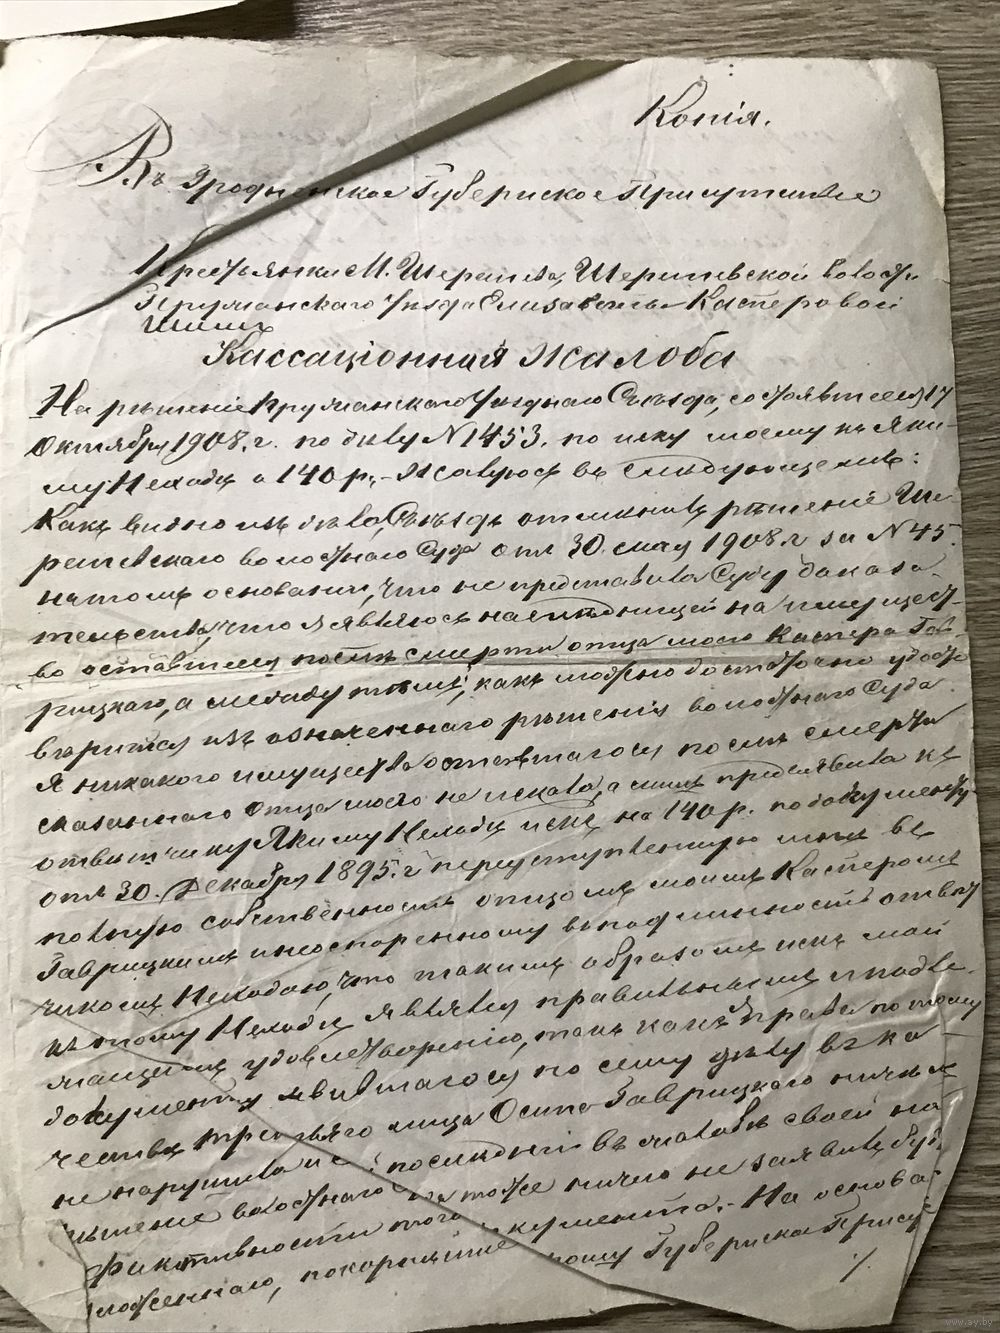 Копія.
Въ Гродненское Губернское Присутствіе
Крестьянки М. Шерешева, Шерешевской волости
Пружанскаго Уѣзда Елизаветы Касперовой
Шимъ
Кассаціонная жалоба
На рѣшеніе Пружанскаго Уѣзднаго Съѣзда, состоявшееся 17
Октября 1908 г. по дѣлу N 1453. по иску моему къ Яки-
му Нелабцу о 140 р,- жалуюсь въ слѣдующемъ:
Какъ видно изъ дѣла, Съѣздъ отмѣнивъ рѣшеніе Ше-
решевскаго волостнаго Суда отъ 30. мая 1908 г за N 45.
натомъ основаніи, что не представила Суду доказа-
тельствъ, что я являюсь наслѣдницей на имущест-
во оставшееся послѣ смерти отца моего Каспера Гав-
рицкаго, а между тѣмъ, какъ можно достаточно удосто
вѣрится изъ означеннаго рѣшенія волостнаго Суда.
Я никакого имущества оставшагося послѣ смерти
сказаннаго отца моего не искала, а лишь предъявила къ
отвѣтчику Якиму Нелабцу искъ на 140 р. по документу
отъ 30. Декабря 1895. г переуступленную мнѣ въ
полную собственность отцомъ моимъ Касперомъ
Гаврицкимъ и неоспоренному въ подлинность отвѣт
чикомъ, что такимъ образомъ искъ мой
къ тому является правильнымъ и подле-
жащимъ удовлетворенію, такъ какъ права по тому
документу явившагося по сему дѣлу въ ка
чествѣ третьяго лица Осипа Гаврицкаго ничѣмъ
не нарушила волостнаго послѣдній въ жалобѣ своей на
рѣшеніе волостнаго тоже ничего не заявилъ о
фиктивности того документа.- На основа
ложеннаго, покорнѣйше Губернско Прису
./.